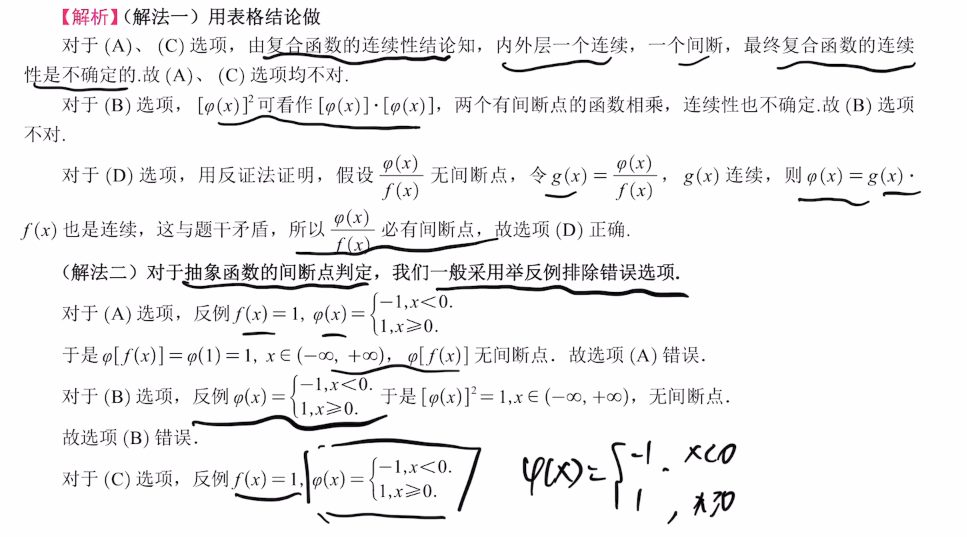 【解析】（解法一）用表格结论做
对于(A)、(C)选项，由复合函数的连续性结论知，内外层一个连续，一个间断，最终复合函数的连续
性是不确定的.故(A)、(C)选项均不对.
对于(B)选项，[φ(x)]²可看作[φ(x)]·[φ(x)]，两个有间断点的函数相乘，连续性也不确定.故(B)选项
不对.
对于(D)选项，用反证法证明，假设 φ(x)/f(x) 无间断点，令g(x)=φ(x)/f(x)，g(x)连续，则φ(x)=g(x)·
f(x)也是连续，这与题干矛盾，所以 φ(x)/f(x) 必有间断点，故选项(D)正确.
（解法二）对于抽象函数的间断点判定，我们一般采用举反例排除错误选项.
对于(A)选项，反例f(x)=1, φ(x)={-1,x<0. 1,x≥0.
于是φ[f(x)]=φ(1)=1, x∈(-∞, +∞)，φ[f(x)]无间断点. 故选项(A)错误.
对于(B)选项，反例φ(x)={-1,x<0. 1,x≥0. 于是[φ(x)]²=1,x∈(-∞, +∞)，无间断点.
故选项(B)错误.
对于(C)选项，反例f(x)=1, φ(x)={-1,x<0. 1,x≥0.
φ(x)={-1. x<0
1 , x≥0